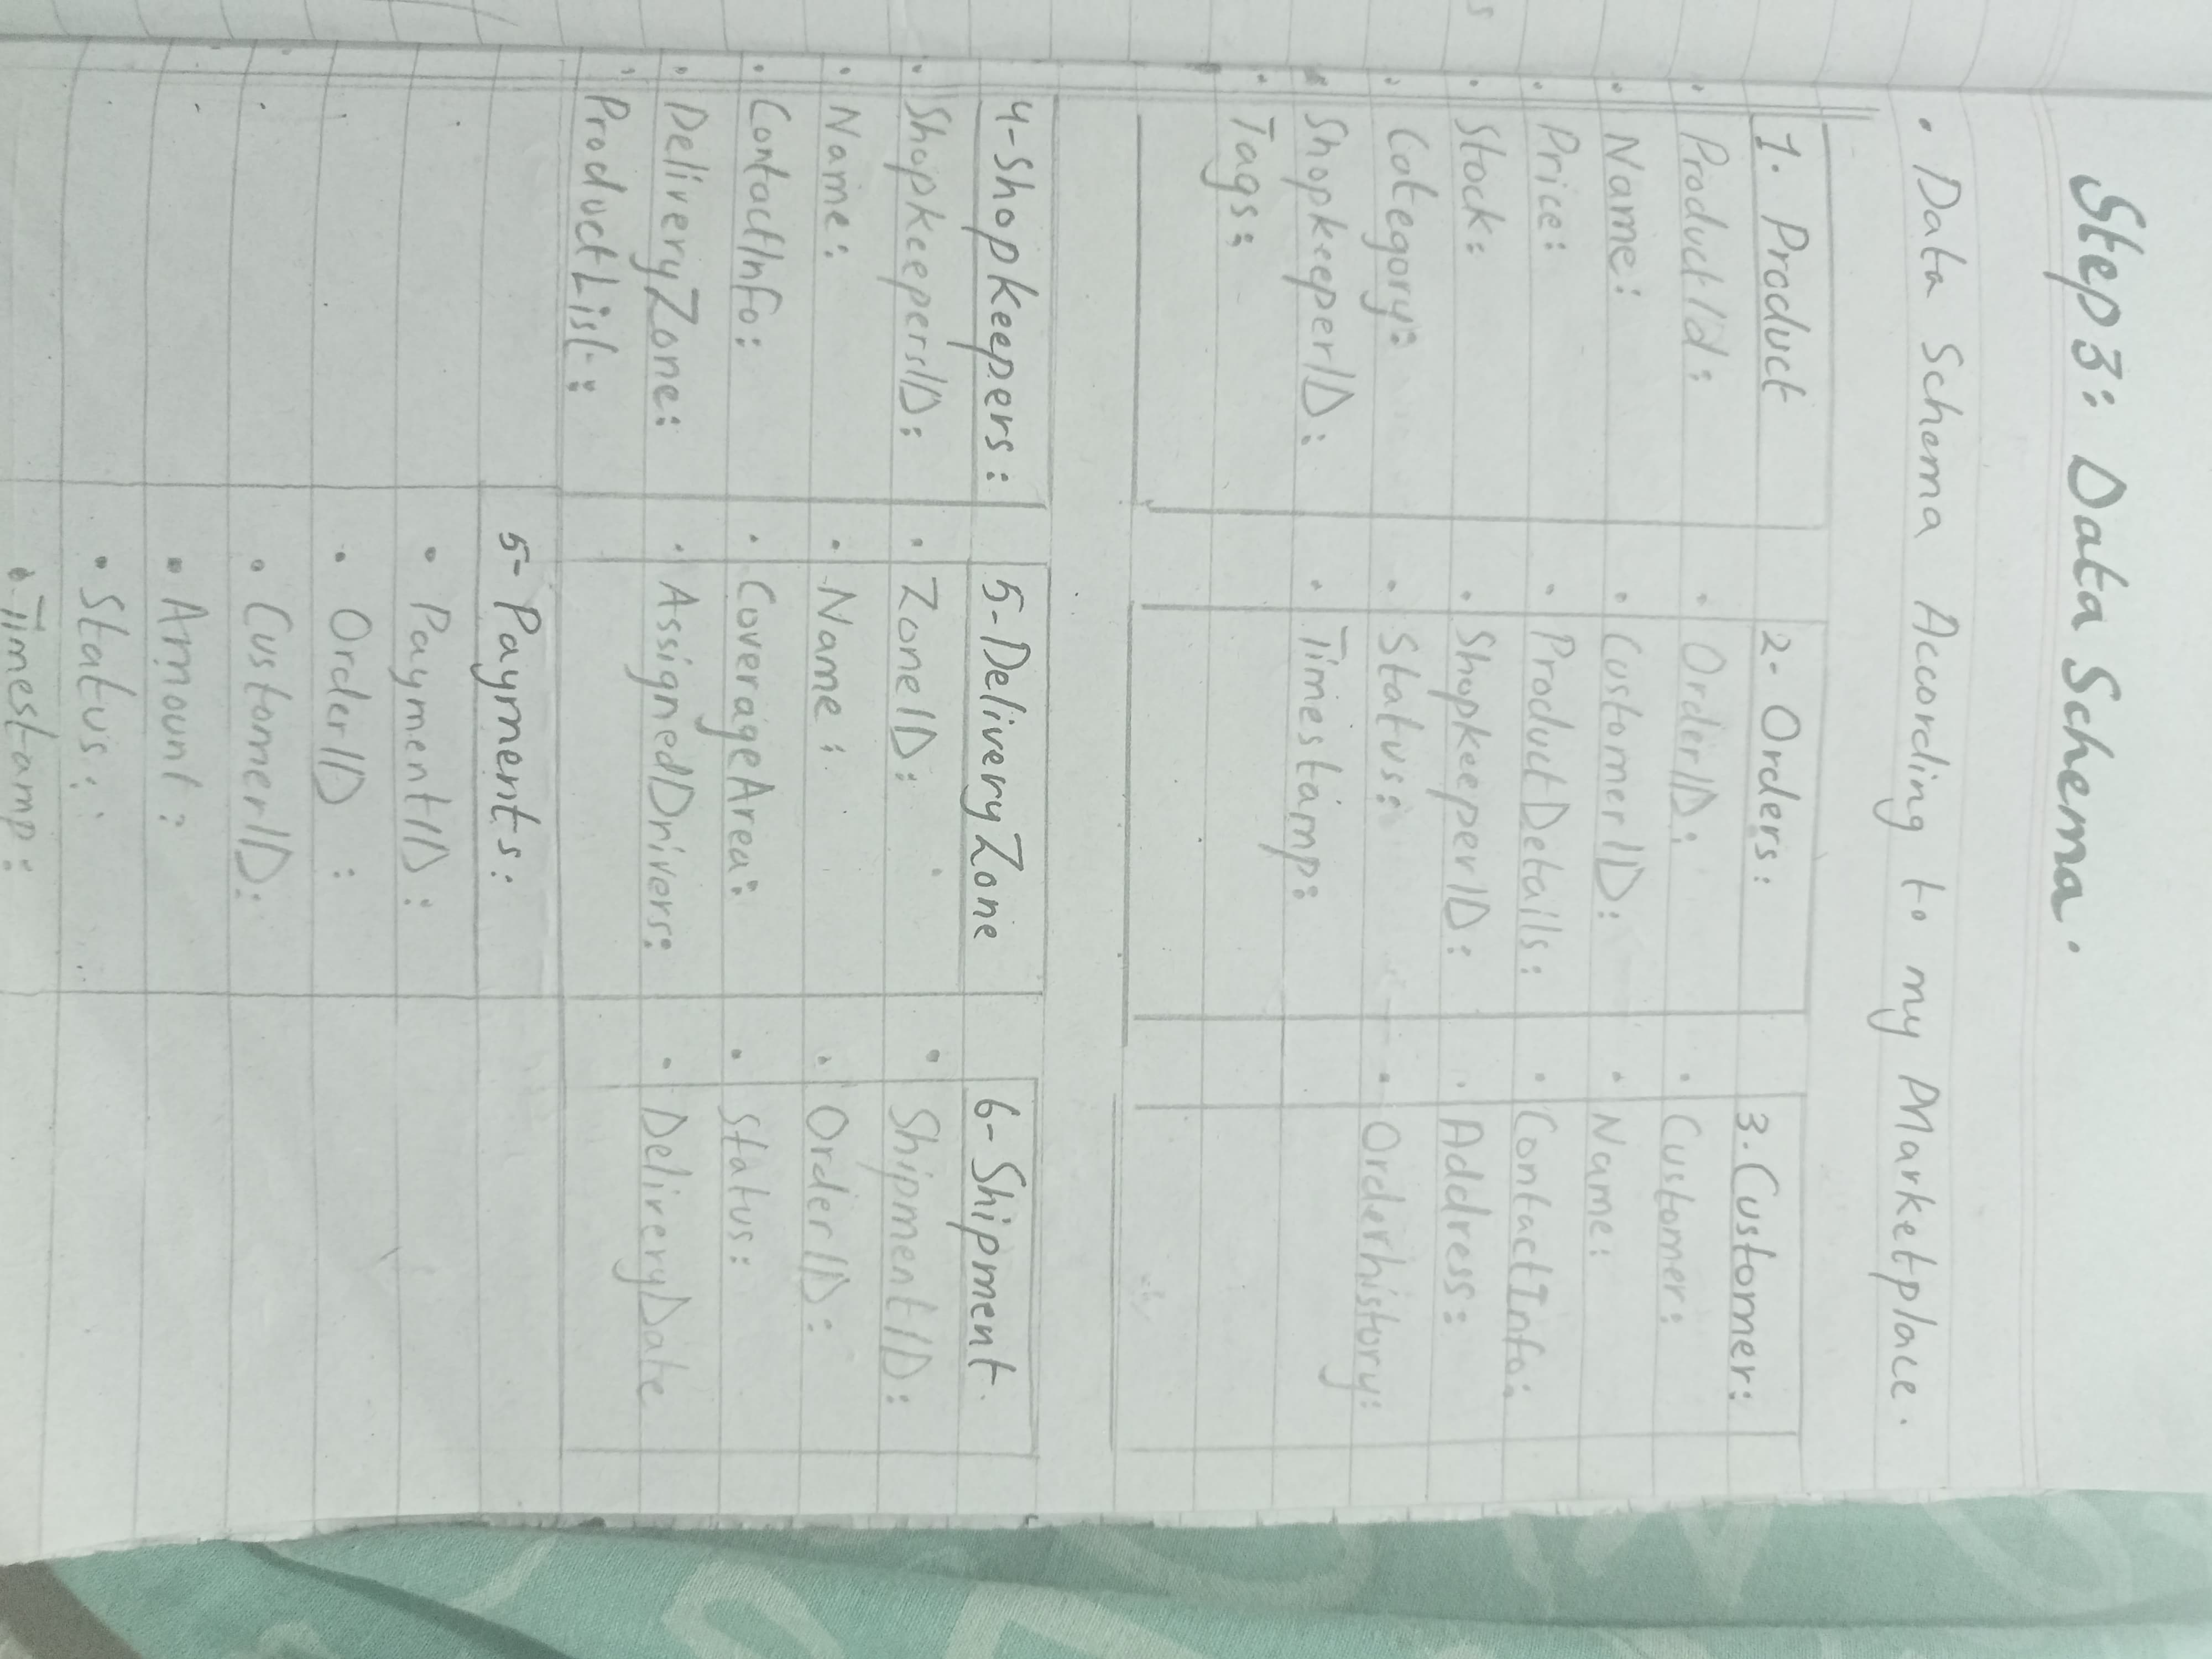 Step 3: Data Schema.
• Data Schema According to my Marketplace.
1. Product
• ProductId:
• Name:
• Price:
• Stock:
• Category:
• ShopkeeperID:
• Tags:
2. Orders:
• OrderID:
• CustomerID:
• ProductDetails:
• ShopkeeperID:
• Status:
• Timestamp:
3. Customer:
• Customer:
• Name:
• ContactInfo:
• Address:
• Orderhistory:
4-Shopkeepers:
• ShopkeepersID:
• Name:
• ContactInfo:
• DeliveryZone:
• ProductList:
5-DeliveryZone
• ZoneID:
• Name:
• CoverageArea:
• AssignedDrivers:
6-Shipment.
• ShipmentID:
• OrderID:
• Status:
• DeliveryDate
5-Payments:
• PaymentID:
• OrderID :
• CustomerID:
• Amount:
• Status:
• Timestamp: